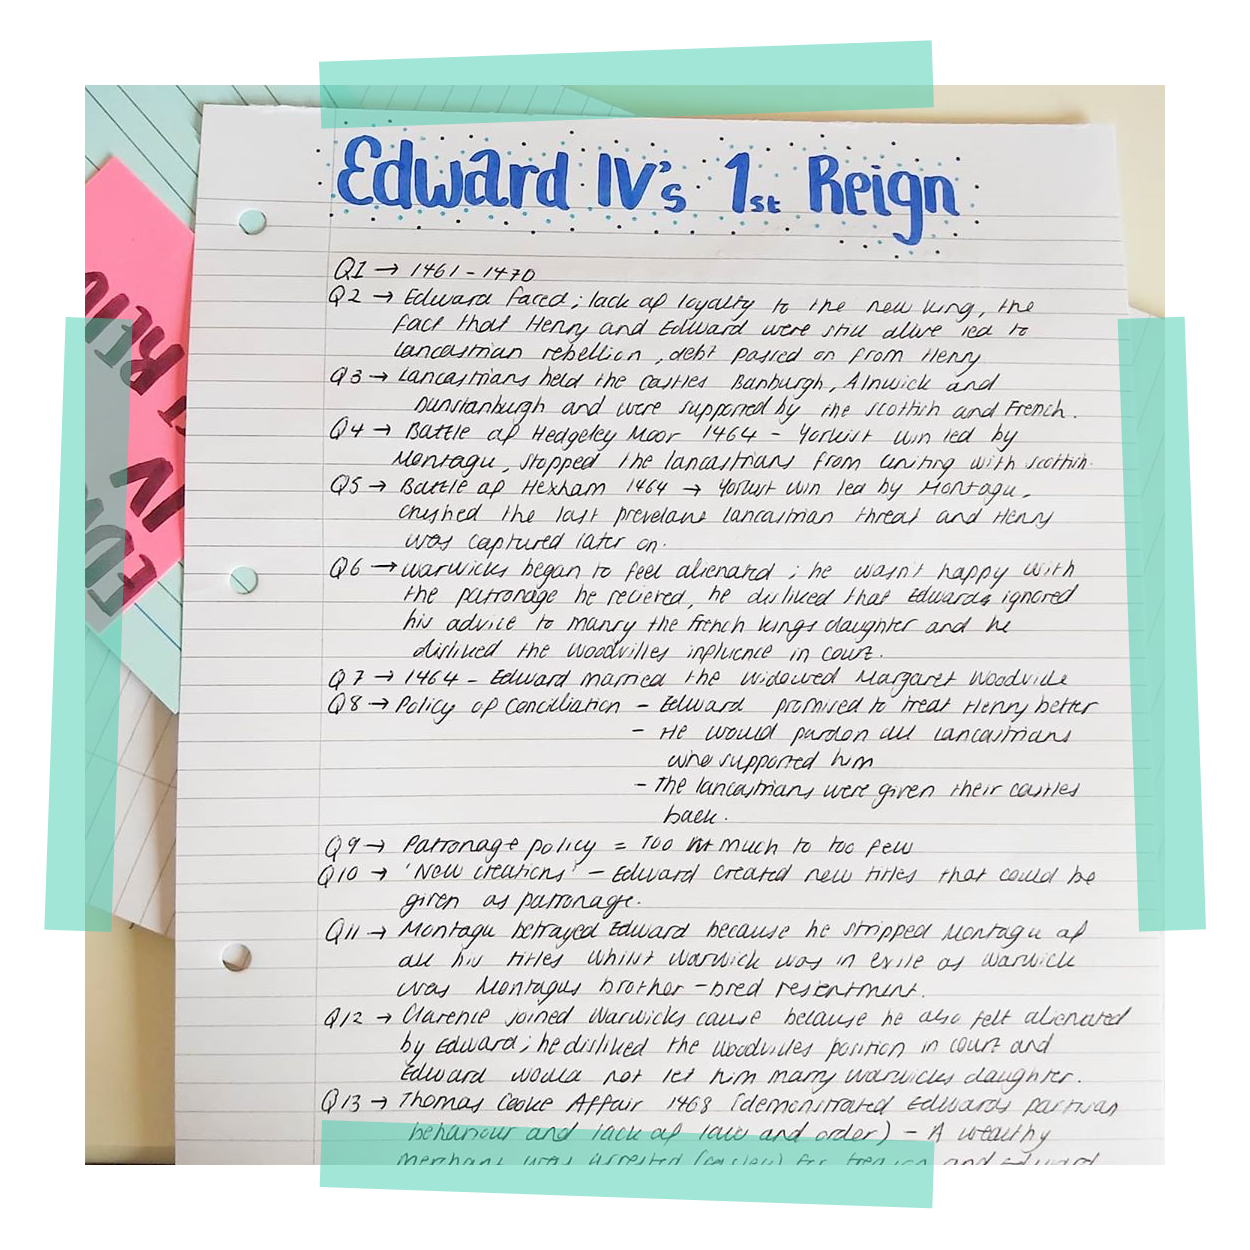 Edward IV's 1st Reign
Q1 → 1461 - 1470
Q2 → Edward faced; lack of loyalty to the new king, the
fact that Henry and Edward were still alive led to
lancastrian rebellion, debt passed on from Henry
Q3 → Lancastrians held the castles Banburgh, Alnwick and
Dunstanburgh and were supported by the scottish and French.
Q4 → Battle of Hedgeley Moor 1464 - Yorkist win led by
Montagu, stopped the lancastrians from uniting with scottish.
Q5 → Battle of Hexham 1464 → Yorkist win led by Montagu,
crushed the last prevelant lancastrian threat and Henry
was captured later on.
Q6 → warwicks began to feel alienated; he wasn't happy with
the patronage he recieved, he disliked that Edwards ignored
his advice to marry the french kings daughter and he
disliked the woodvilles influence in court.
Q7 → 1464 - Edward married the widowed Margaret Woodville
Q8 → Policy of conciliation - Edward promised to treat Henry better
- He would pardon all lancastrians
who supported him
- The lancastrians were given their castles
back.
Q9 → Patronage policy = Too much to too few
Q10 → 'New creations' - Edward created new titles that could be
given as patronage.
Q11 → Montagu betrayed Edward because he stripped Montagu of
all his titles whilst warwick was in exile as warwick
was Montagus brother - bred resentment.
Q12 → Clarence joined Warwicks cause because he also felt alienated
by Edward; he disliked the woodvilles position in court and
Edward would not let him marry warwicks daughter.
Q13 → Thomas Cooke Affair 1468 (demonstrated Edwards partisan
behaviour and lack of law and order) - A wealthy
merchant was arrested for treason and Edward
IV